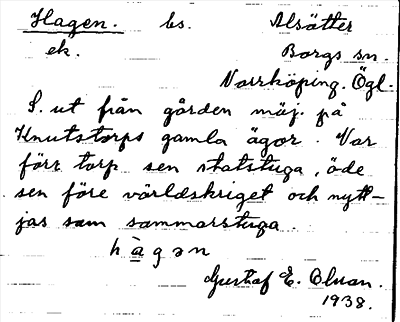 Hagen. bs. Alsätter
ek. Borgs sn.
Norrköping. Ögl.
S. ut från gården möj. på
Knutstorps gamla ägor. Var
förr torp sen statstuga, öde
sen före världskriget och nytt-
jas som sommarstuga.
hàgan
Gustaf E. Olsson.
1938.